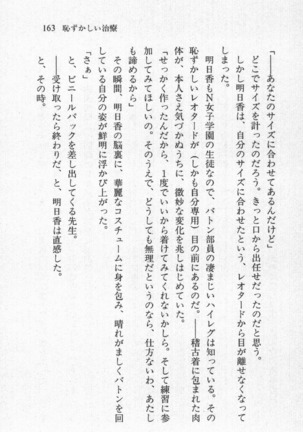 163 恥ずかしい治療
「――あなたのサイズに合わせてあるんだけど」
どこでサイズを計ったのだろう。きっと口から出任せだったのだと思う。
しかし明日香は、自分のサイズに合わせたという、レオタードから目が離せなくなって
しまった。
明日香もＮ女子学園の生徒なので、バトン部員の凄まじいハイレグは知っている。その
恥ずかしいレオタードが（しかも自分専用）目の前にあるのだ。――稽古着に包まれた肉
体が、本人さえ気づかぬうちに、微妙な変化を兆しはじめていた。
「せっかく作ったんだから、１度でいいから着けてみてくれないかしら。そして練習に参
加してみてほしいの。そのうえで、どうしても無理だというのなら、仕方ないわ、あたし
も諦めるから」
その瞬間、明日香の脳裏に、華麗なコスチュームに身を包み、晴れがましくバトンを回
している自分の姿が鮮明に浮かび上がった。
「さぁ」
と、ビニールパックを差し出してくる先生。
――受け取ったら終わりだ、と、明日香は直感した。
と、その時。